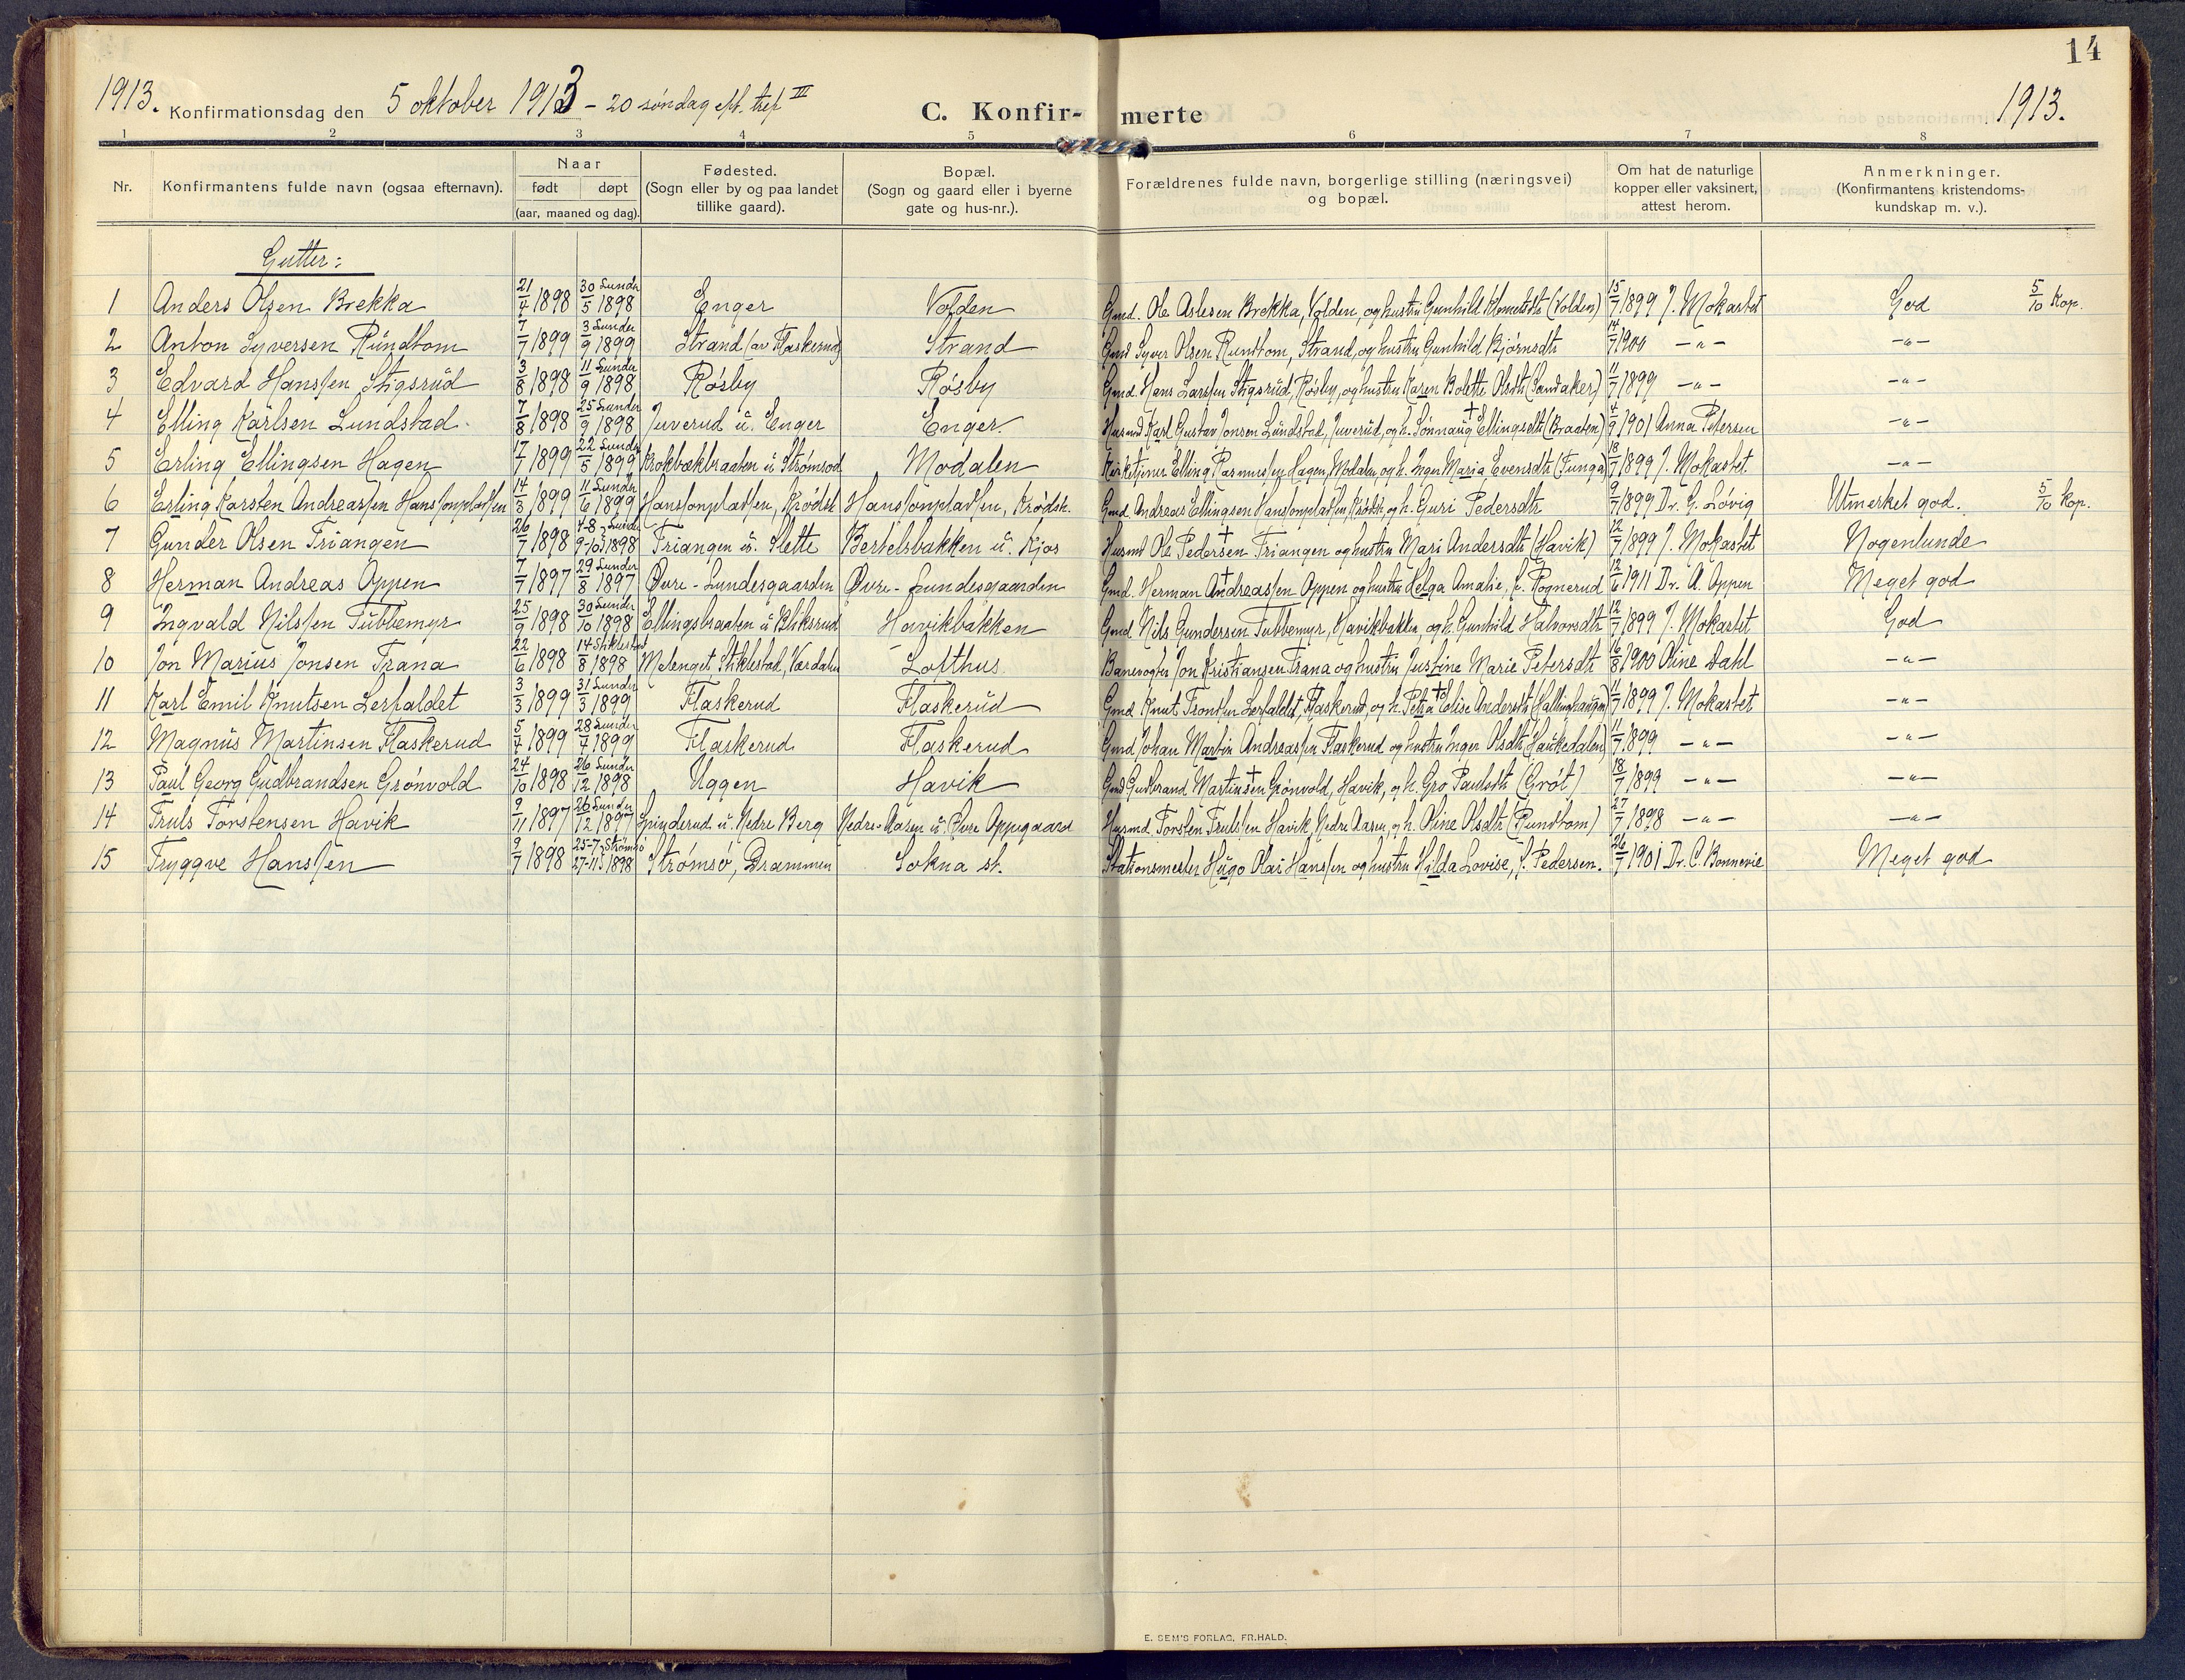 14
1913. Konfirmationsdag den 5 oktober 1913 – 20 søndag eft. tref III C. Konfir- merte 1913.
1 2 3 4 5 6 7 8
Nr. Konfirmantens fulde navn (ogsaa efternavn). Naar født døpt (aar, maaned og dag). Fødested. (Sogn eller by og paa landet tillike gaard). Bopæl. (Sogn og gaard eller i byerne gate og hus-nr.). Forældrenes fulde navn, borgerlige stilling (næringsvei) og bopæl. Om hat de naturlige kopper eller vaksinert, attest herom. Anmerkninger. (Konfirmantens kristendoms-kundskap m. v.).
Gutter:
1 Anders Olsen Brekka 21/4 1898 30/5 Lunder 1898 Enger Volden Gmd. Ole Aslesen Brekka, Volden, og hustru Gunhild (Volden) 15/7 1899 J. Mokastet God 5/10 Kop.
2 Anton Syversen Rundtom 7/7 1899 3/9 Lunder 1899 Strand (av Flaskerud) Strand Gmd Syver Olsen Rundtom, Strand, og hustru Gunhild Bjørnsdtr 14/7 1900 —„— —„—
3 Edvard Hanssen Stigsrud 3/8 1898 11/9 Lunder 1898 Røsby Røsby Gmd. Hans Larssen Stigsrud, Røsby, og hustru Karen Bolette Olsdtr (Sandaker) 11/7 1899 —„— —„—
4 Elling Karlsen Lundstad. 7/8 1898 25/9 Lunder 1898 Juverud u. Enger Enger. Husmd Karl Gustav Jonsen Lundstad, Juverud, og h. Sønnaug † Ellingsdtr (Braaten) 4/9 1901 Anna Petersen —„—
5 Erling Ellingsen Hagen 17/7 1899 22/5 Lunder 1899 Krokbækbraaten u Strømsod Modalen Kirketjener Elling Rasmussen Hagen, Modalen og h. Inger Maria Evensdtr (Tunga) 18/7 1899 J. Mokastet. —„—
6 Erling Karsten Andreassen Hanssonpladsen 14/3 1899 11/6 Lunder 1899 Hanssonpladsen, Krødsh Hanssonpladsen, Krødsh. Gmd. Andreas Ellingsen Hanssonpladsen, Krødsh, og h. Guri Pedersdtr 9/7 1899 Dr. G. Løvig Utmerket god. 5/10 Kop.
7 Gunder Olsen Triangen 26/7 1898 4-8 9-10 Lunder 1898 Triangen u. Slette Bertelsbakken u. Kjos Husmd Ole Pedersen † Triangen og hustru Mari Andersdtr (Havik) 12/7 1899 J. Mokastet Nogenlunde
8 Herman Andreas Oppen 7/7 1897 29/8 Lunder 1897 Øvre-Lundesgaarden Øvre-Lundesgaarden Gmd. Herman Andreassen † Oppen og hustru Helga Amalie, f. Rognerud 12/6 1911 Dr. A. Oppen Meget god
9 Ingvald Nilssen Tubbemyr 25/9 1898 30/10 Lunder 1898 Ellingsbraaten u Bliksrud Havikbakken Gmd Nils Gundersen Tubbemyr, Havikbakken, og h. Gunhild Halvorsdtr 12/7 1899 J. Mokastet God
10 Jon Marius Jonsen Trana 22/6 1898 14/8 Stiklestad 1898 Melenget, Stiklestad, Værdalen Lofthus Banevogter Jon Kristiansen Trana og hustru Justine Marie Petersdtr 16/8 1900 Oline Dahl —„—
11 Karl Emil Knutsen Lerfaldet 3/3 1899 31/3 Lunder 1899 Flaskerud Flaskerud Gmd Knut Trondsen Lerfaldet, Flaskerud, og h. Petra † Elise Andersdtr (Hallinghaugen) 11/7 1899 J. Mokastet —„—
12 Magnus Martinsen Flaskerud 5/4 1899 28/4 Lunder 1899 Flaskerud Flaskerud Gmd Johan Martin Andreassen Flaskerud og hustru Inger Olsdtr (Haukedalen) 11/7 1899 —„— —„—
13 Paul Georg Gudbrandsen Grønvold 24/10 1898 26/12 Lunder 1898 Uggen Havik Gmd Gudbrand Martinsen † Grønvold, Havik, og h. Gro Paulsdtr (Grøt) 18/7 1899 —„— —„—
14 Truls Torstensen Havik 9/11 1897 26/12 Lunder 1897 Spinderud u. Nedre Berg Nedre-Aasen u. Øvre Oppegaard Husmd. Torsten Trulssen Havik, Nedre Aasen, og h. Oline Olsdtr (Rundtom) 27/7 1898 —„— —„—
15 Tryggve Hanssen 9/7 1898 25-7 27-11 Strømsø 1898 Strømsø, Drammen Sokna st. Stationsmester Hugo Olai Hanssen og hustru Hilda Lovise, f. Pedersen. 26/7 1901 Dr. C. Bonnevie Meget god
E. SEM'S FORLAG, FR.HALD.